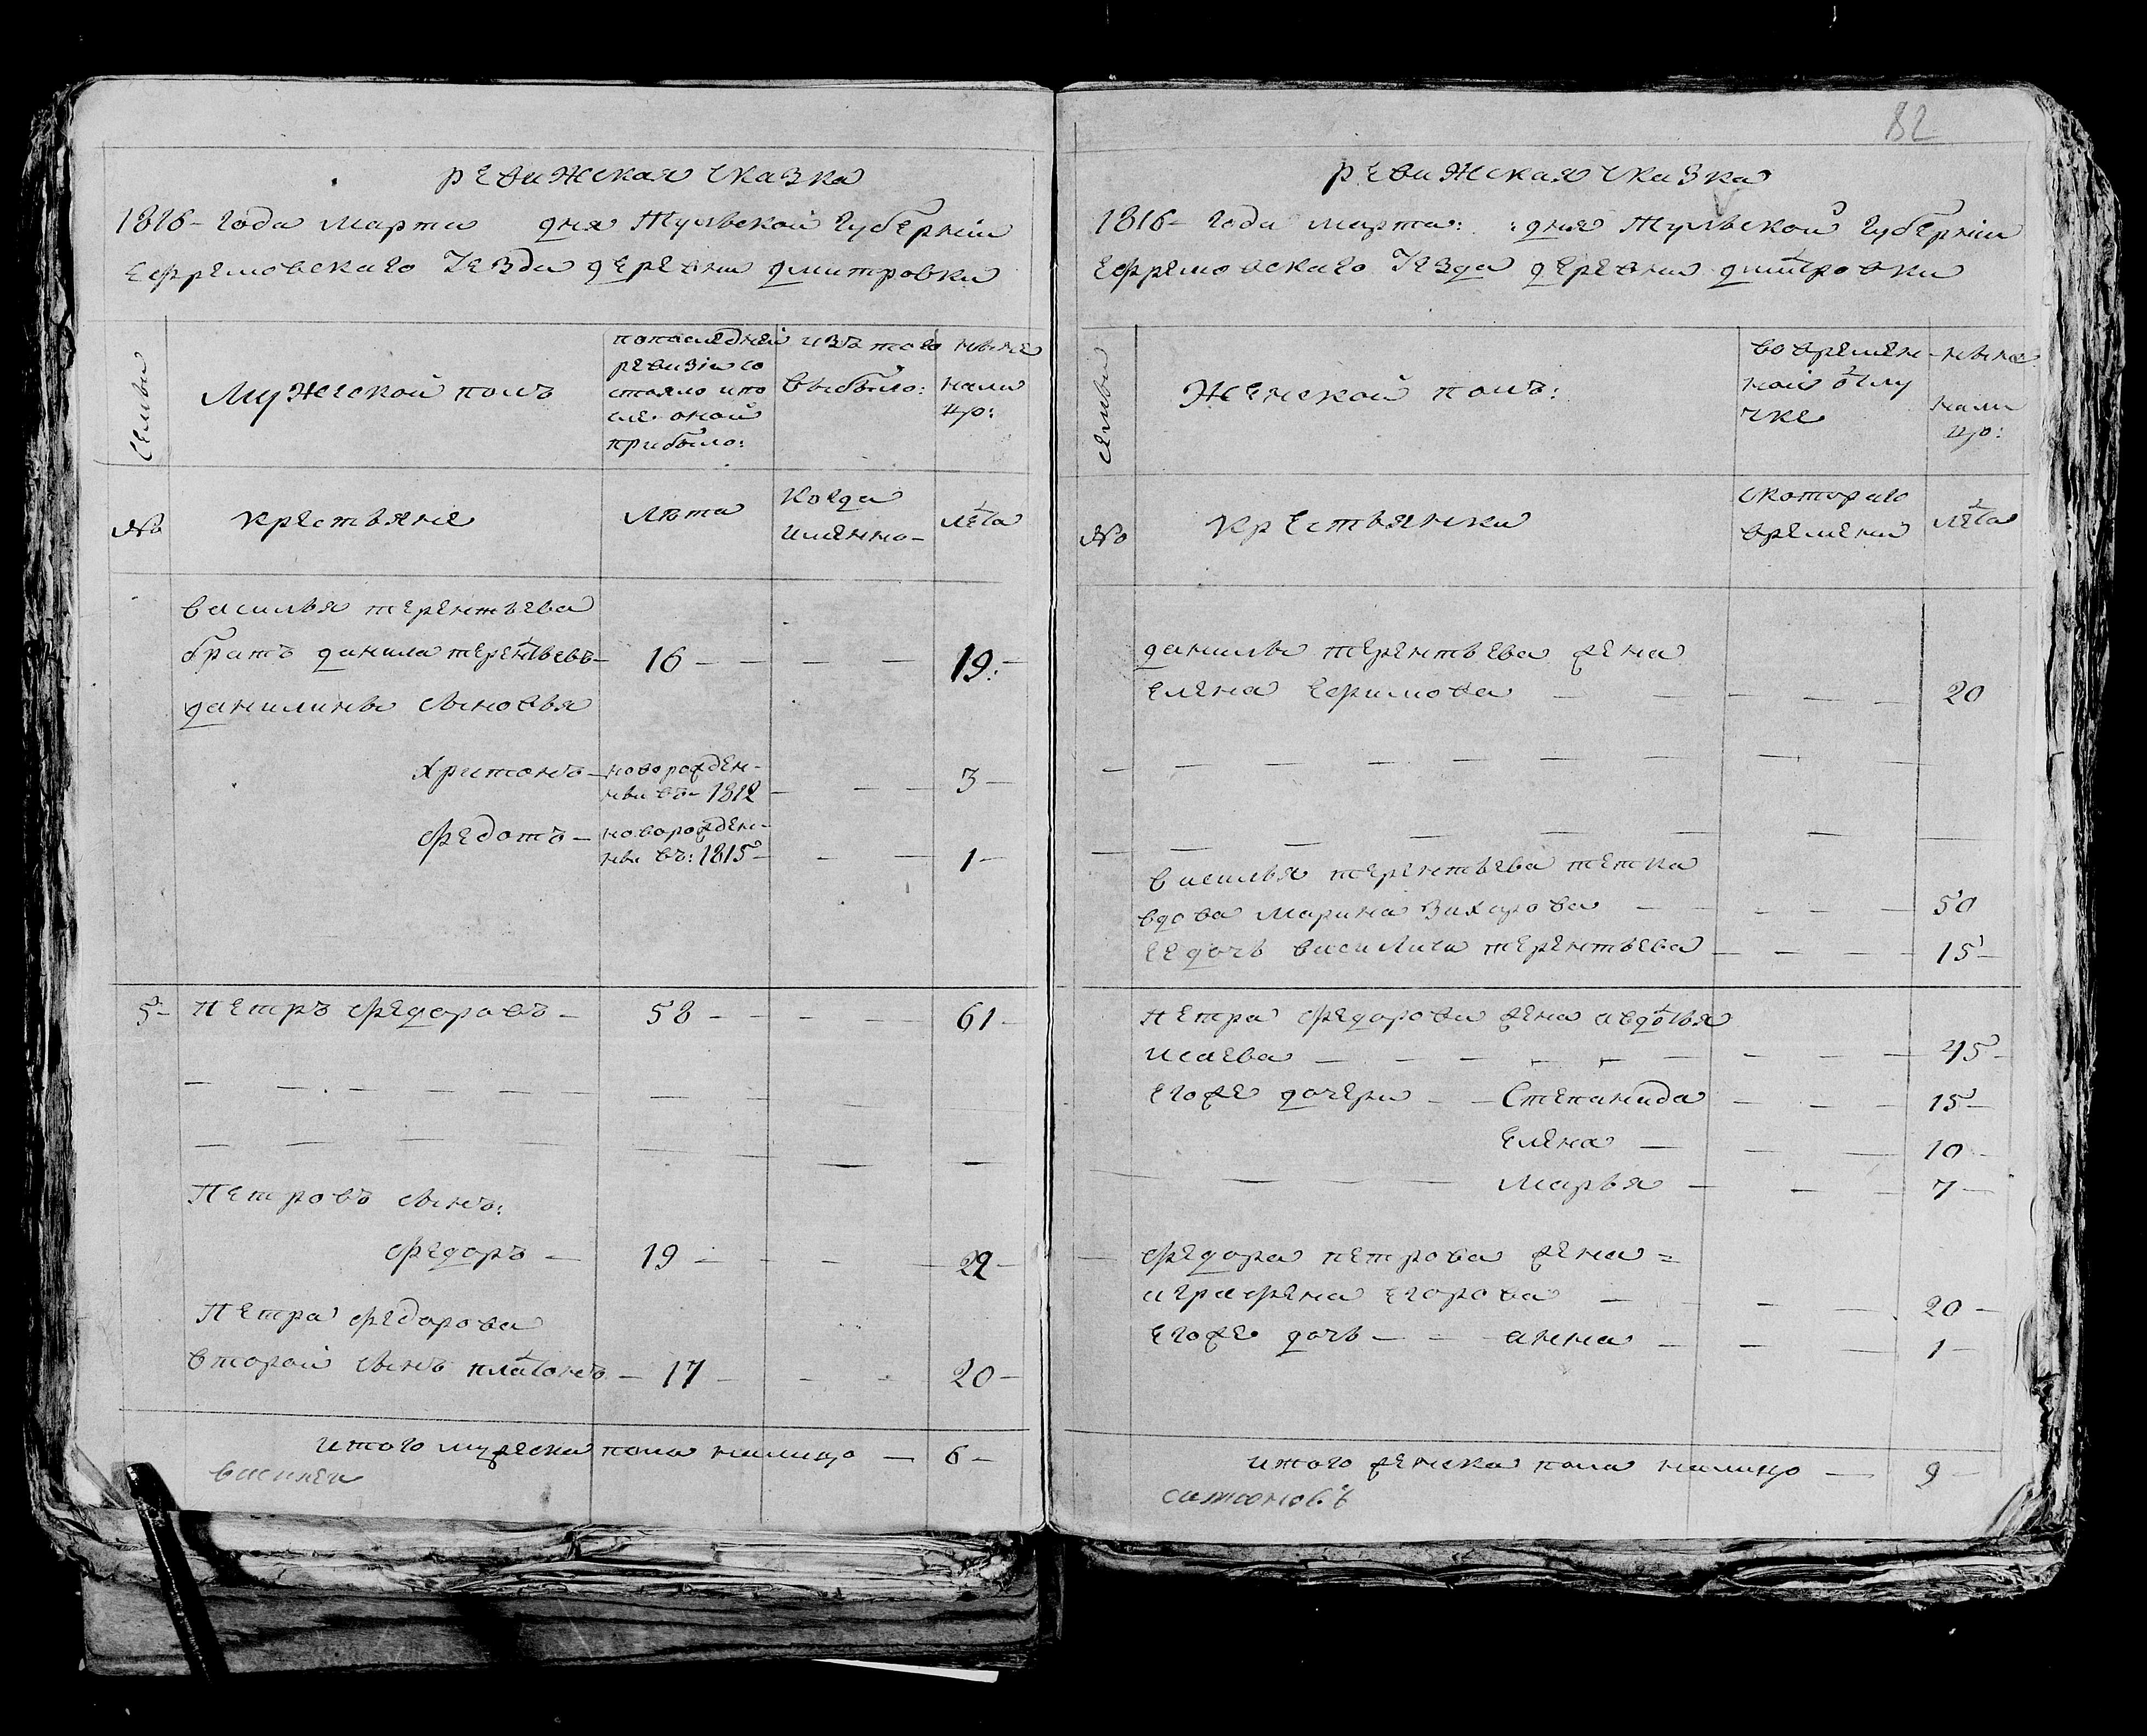 ревижская сказка
1816- года марта дня Тульской губернии
ефремовскаго уезда деревни дмитровки
семьи
Мужеской полъ
по последней
ревизiи со
стояло и по
сле оной
прибыло:
изъ того
выбыло:
ныне
нали
цо:
№
крестьяне
Лета
Когда
имянно-
лета
василья терентьева
братъ данила терентьевъ- 16 - - - - 19:-
данилины сыновья
Харитонъ- новорожден-
ны въ- 1812 - - - 3-
федотъ- новорожден-
ны въ: 1815- - - 1-
5- петръ федоровъ- 58 - - - - 61-
- - - - - - - - - -
- - - - - - - -
Петровъ сынъ:
федоръ - 19 - - - - 22-
Петра федорова
второй сынъ платонъ - 17 - - - 20-
итого мужеска пола налицо - 6-
василеи
82
ревижская сказка
1816- года марта: :дня Тульской губернии
ефремовскаго уезда деревни дмитровки
семьи
Женской полъ:
во времян-
ной отлу
чке
ныне
нали
цо:
№
крестьянки
с котораго
времяни
лета
данилы терентьева жена
елена ефимова - - - - - 20
- - - - - - - -
- - - - - - - -
василья терентьева тетка
вдова Марина Захарова - - - - - 50
ее дочь василиса терентьева - - - - 15-
петра федорова жена авдотья
исаева - - - - - - - - - 45-
его же дочери - - Степанида - - - 15-
елена - - - 10-
- - - - Марья - - - 7-
- федора петрова жена =
аграфена егорова - - - - 20-
его же дочь - - анна - - - 1-
итого женска пола налицо - 9-
сафоновъ